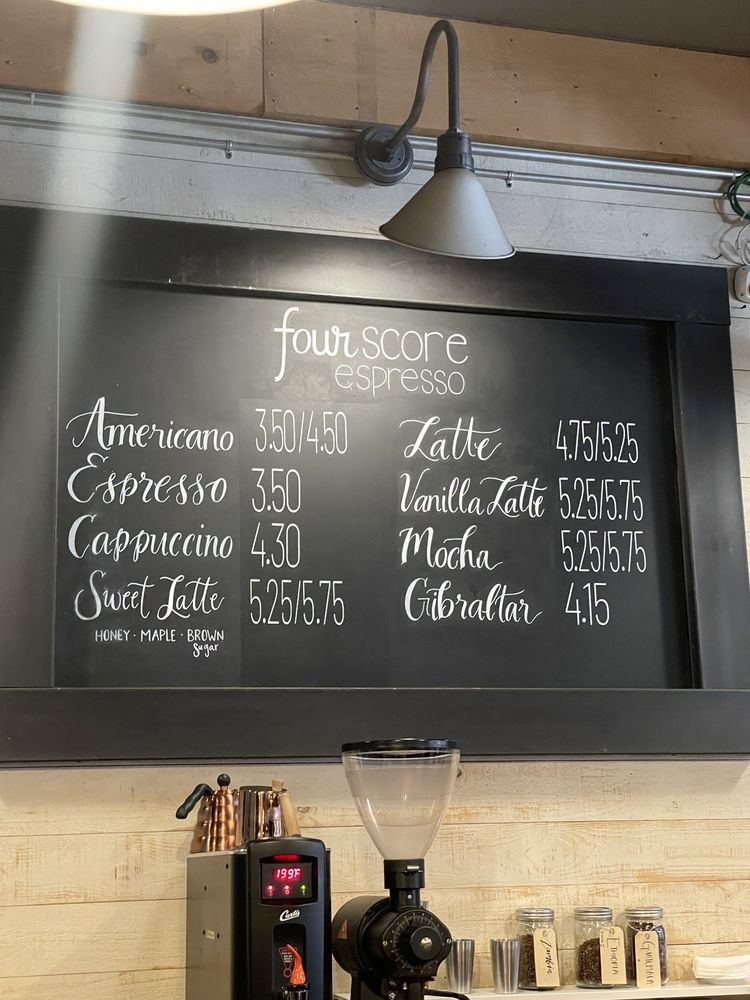 four score
espresso
Americano 3.50/4.50
Espresso 3.50
Cappuccino 4.30
Sweet Latte 5.25/5.75
HONEY · MAPLE · BROWN
sugar
Latte 4.75/5.25
Vanilla Latte 5.25/5.75
Mocha 5.25/5.75
Gibraltar 4.15
199F
Curtis
ETHIOPIA
GUATEMALA